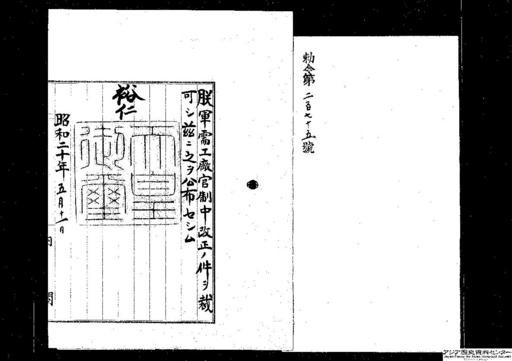 勅令第二百七十五號
朕軍需工廠官制中改正ノ件ヲ裁
可シ茲ニ之ヲ公布セシム
裕仁
天皇
御璽
昭和二十年五月十一日
内閣
アジア歴史資料センター